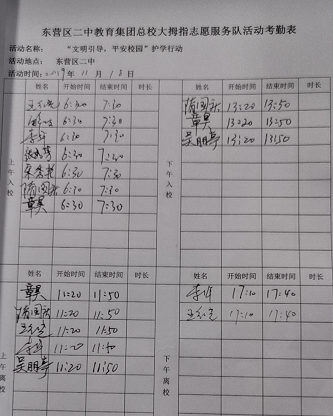 东营区二中教育集团总校大拇指志愿服务队活动考勤表
活动名称: “文明引导，平安校园”护学行动
活动地点: 东营区二中
活动时间: 2019年11月18日
上午入校
姓名 开始时间 结束时间 时长
6:30 7:30
6:30 7:30
李萍 6:30 7:30
6:30 7:30
6:30 7:30
隋国 6:30 7:30
章昊 6:30 7:30
下午入校
姓名 开始时间 结束时间 时长
隋国 13:20 13:50
章昊 13:20 13:50
吴丽亭 13:20 13:50
上午离校
姓名 开始时间 结束时间 时长
章昊 11:20 11:50
隋国 11:20 11:50
11:20 11:50
李萍 11:20 11:50
吴丽亭 11:20 11:50
下午离校
姓名 开始时间 结束时间 时长
李萍 17:10 17:40
17:10 17:40